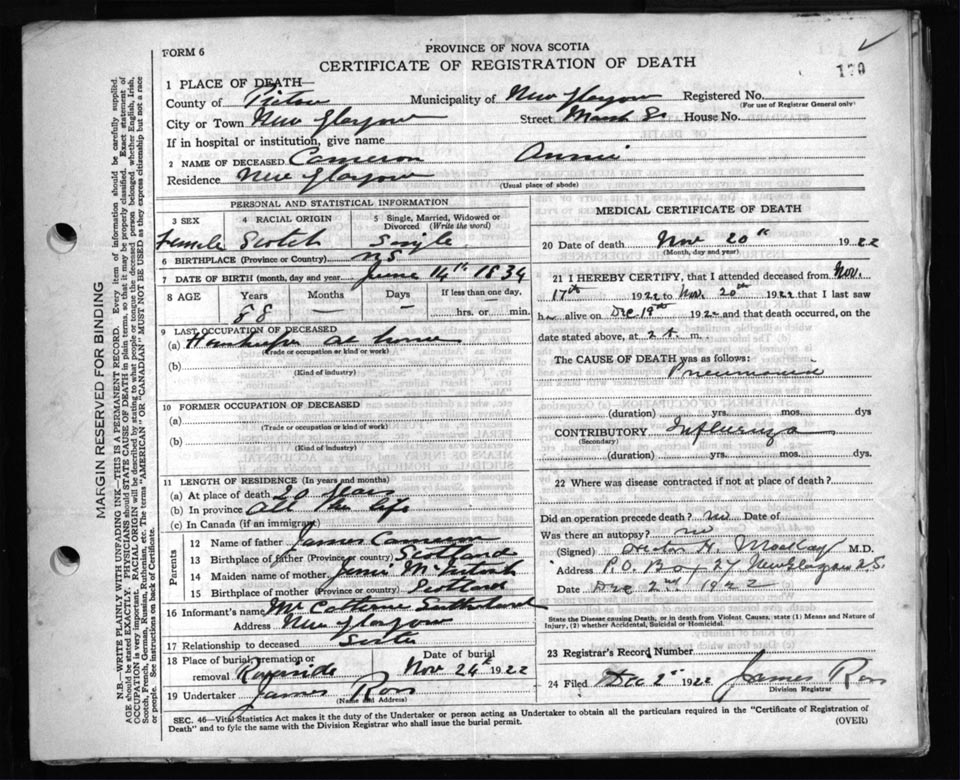 FORM 6
PROVINCE OF NOVA SCOTIA
CERTIFICATE OF REGISTRATION OF DEATH
170
1 PLACE OF DEATH—
County of Pictou Municipality of New Glasgow Registered No.
(For use of Registrar General only)
City or Town New Glasgow Street Marsh St House No.
If in hospital or institution, give name
2 NAME OF DECEASED Cameron Annie
Residence New Glasgow
(Usual place of abode)
PERSONAL AND STATISTICAL INFORMATION
3 SEX 4 RACIAL ORIGIN 5 Single, Married, Widowed or Divorced (Write the word)
Female Scotch Single
6 BIRTHPLACE (Province or Country) N S
7 DATE OF BIRTH (month, day and year) June 14th 1834
8 AGE Years Months Days If less than one day,
88 hrs. or min.
9 LAST OCCUPATION OF DECEASED
(a) Housekeeper at home
(Trade or occupation or kind or work)
(b)
(Kind of industry)
10 FORMER OCCUPATION OF DECEASED
(a)
(Trade or occupation or kind of work)
(b)
(Kind of industry)
11 LENGTH OF RESIDENCE (In years and months)
(a) At place of death 20 years
(b) In province All her life
(c) In Canada (if an immigrant)
Parents
12 Name of father James Cameron
13 Birthplace of father (Province or country) Scotland
14 Maiden name of mother Jennie McIntosh
15 Birthplace of mother (Province or country) Scotland
16 Informant's name Mrs Catherine Sutherland
Address New Glasgow
17 Relationship to deceased Sister
18 Place of burial, cremation or removal Riverside Date of burial Nov 24th 1922
19 Undertaker James Ross
(Name and Address)
MEDICAL CERTIFICATE OF DEATH
20 Date of death Nov 20th 1922
(Month, day and year)
21 I HEREBY CERTIFY, that I attended deceased from Nov.
17th 1922 to Nov. 20th 1922 that I last saw
her alive on Dec 19th 1922 and that death occurred, on
date stated above, at 2 A. m.
The CAUSE OF DEATH was as follows:
Pneumonia
(duration) yrs. mos. dys
CONTRIBUTORY Influenza
(Secondary)
(duration) yrs. mos. dys.
22 Where was disease contracted if not at place of death?
Did an operation precede death? no Date of
Was there an autopsy? no
(Signed) Hector H. MacKay M.D.
Address P.O. Box 27 New Glasgow N.S.
Date Dec 2nd 1922
State the Disease causing Death, or in death from Violent Causes, state (1) Means and Nature of Injury, (2) whether Accidental, Suicidal or Homicidal.
23 Registrar's Record Number
24 Filed Dec 2nd 1922 James Ross
Division Registrar
SEC. 46—Vital Statistics Act makes it the duty of the Undertaker or person acting as Undertaker to obtain all the particulars required in the "Certificate of Registration of
Death" and to fyle the same with the Division Registrar who shall issue the burial permit.
(OVER)
MARGIN RESERVED FOR BINDING
N.B.—WRITE PLAINLY WITH UNFADING INK—THIS IS A PERMANENT RECORD. Every item of information should be carefully supplied.
AGE should be stated EXACTLY. PHYSICIANS should STATE CAUSE OF DEATH in plain terms, so that it may be properly classified. Exact statement of
OCCUPATION is very important. RACIAL ORIGIN will be described by stating to what people or tongue the deceased person belonged whether English, Irish,
Scotch, French, German, Russian, Ruthenian, etc. The terms "AMERICAN" OR "CANADIAN" MUST NOT BE USED as they express citizenship but not a race
or people. See instructions on back of Certificate.